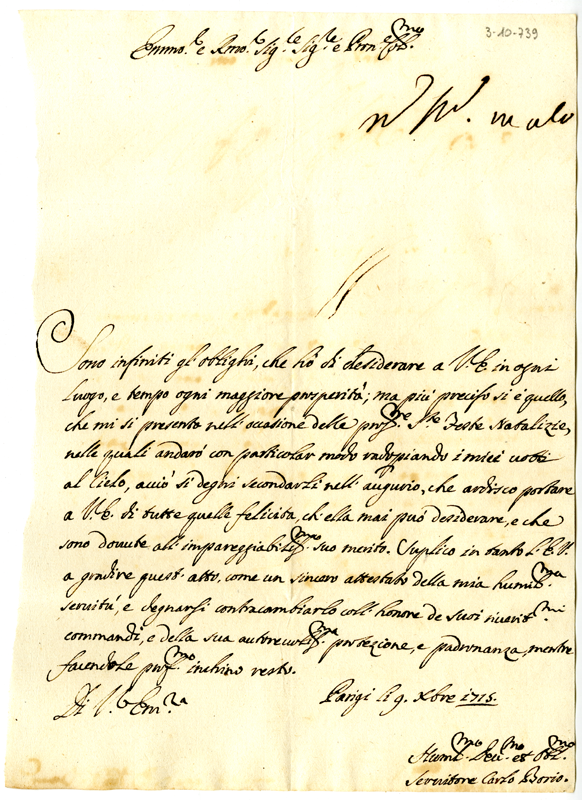 3-10-739
Emmo.e e Rmo. Sig.re Sig.re e Pron.e Col.mo
Sono infiniti gl'oblighi, che hò di desiderare a V.E. in ogni
luogo, e tempo ogni maggiore prosperità; ma più preciso si è quello,
che mi si presenta nell'occasione delle pross.me S.te Feste Natalizie,
nelle quali andarò con particolar modo radopiando i miei votti
al Cielo, acciò si degni secondarli nell'augurio, che ardisco portare
a V.E. di tutte quelle felicità, ch'ella mai può desiderare, e che
sono dovute all'impareggiabiliss.mo suo merito. Suplico in tanto l'E.V.
a gradire quest'atto, come un sincero attestato della mia humiliss.ma
servitù, e degnarsi contracambiarlo coll'honore de suoi riverit.mi
commandi, e della sua autorevoliss.ma protezione, e padronanza, mentre
facendole prof.mo inchino resto.
Di V.E. Em.za
Parigi li 9. Xbre 1715.
Humil.mo Dev.mo et Obl.mo
Servitore Carlo Borio.